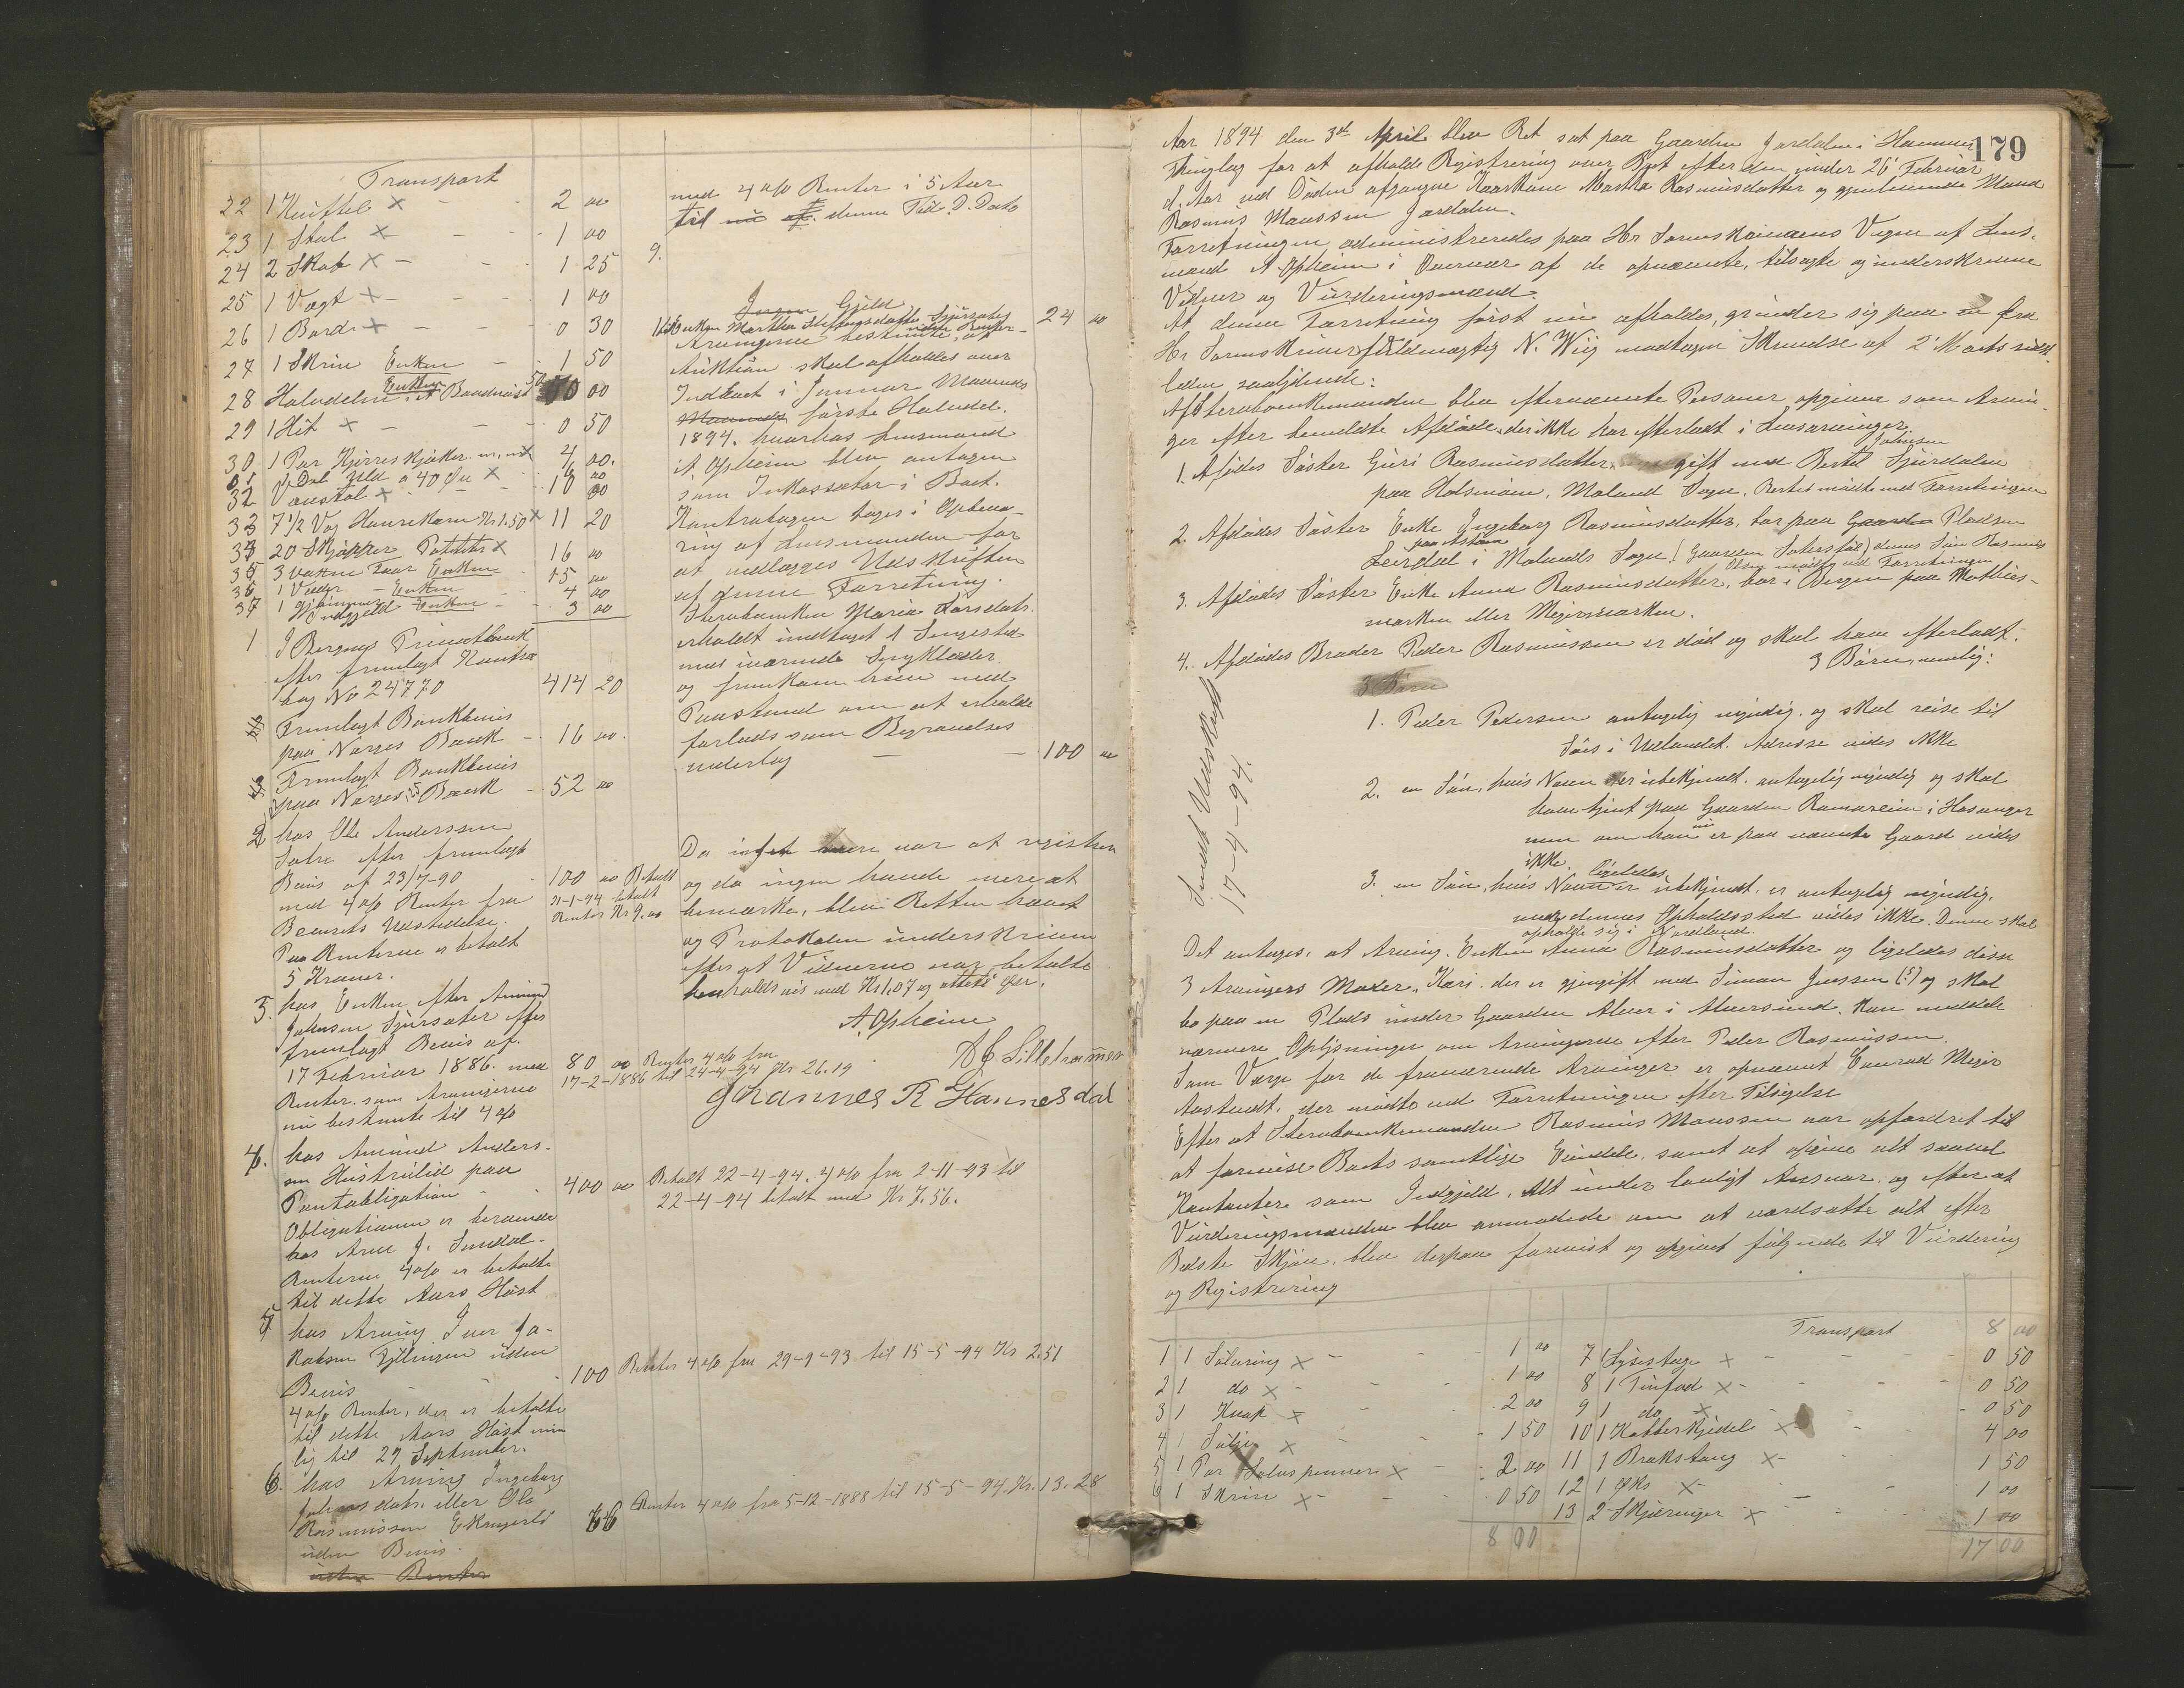 Transport
22 1 Kuffel × - - 2 00
23 1 Stol × - - 1 00
24 2 Skab × - - 1 25
25 1 Vægt × - - 1 00
26 1 Bord × - - 0 30
27 1 Skrin Enken - 1 50
28 Halvdelen i et Baadnøst Enken 50 00
29 1 Hit × - - 0 50
30 1 Par × 4 00.
à 40 Øre × 16 00
32 × 10 00
33 7 1/2 Vog Kr 1.50 × 11 20
20 Skjæpper Poteter × 16 00
35 3 voxne Faar Enken 15 00
36 1 Væder - Enken 4 00
37 1 Enken - 3 00
Indgjæld
1 I Bergens Privatbank
efter fremlagt Kontra
bog No 24770 414 20
Fremlagt Bankbevis
paa Norges Bank - 16 00.
Fremlagt Bankbevis
paa Norges Bank - 52 00
2 hos Ole Anderssen
Sætre efter fremlagt
Bevis af 23/7-90 100 00 Betalt
med 4 o/o Renter fra 21-1-94 betalt
Bevisets Udstedelse. Renter Kr 9.00
Paa Renterne er betalt
5 Kroner.
3. hos Enken efter Amund
Johnsen Sjursæter efter
fremlagt Bevis af.
17 Februar 1886. med 80 00 Renter 4 o/o fra
Renter. som Arvingerne 17-2-1886 til 24-4-94 Kr 26.19
nu bestemte til 4 o/o
4. hos Amund Anders-
sen Hustrulid paa
Pantobligation - 400 00 Betalt 22-4-94. 4 o/o fra 2-11-93 til
Obligationen er beroende 22-4-94 betalt med Kr 7.56.
hos Arne J. Sundal.
Renterne 4 o/o er betalte
til dette Aars Høst
5 hos Arving Iver Ja-
kobsen uden
Bevis - - 100 Renter 4 o/o fra 29-9-93 til 15-5-94 Kr 2.51
4 o/o Renter, der er betalte
til dette Aars Høst nem
lig til 29 September.
6. hos Arving Ingeborg
eller Ole
Rasmussen
uden Bevis. 66 Renter 4 o/o fra 5-12-1888 til 15-5-94. Kr. 13.28
uden Renter
med 4 o/o Renter i 5 Aar
til nu af denne Tid D. Dato
9.
Gjæld
1 til Enken Martha 24 00
Arvingerne bestemte, at
Auktion skal afholdes over
Indboet i Januar Maaneds
Maaneds første Halvdel.
1894. hvorhos Lensmand
A. Opheim blev antagen
som Inkassator i Boet.
Kontrabogen toges i Opbeva-
ring af Lensmanden for
at vedlægges Udskriften
af denne Forretning.
Sterboenken Maria Larsdatr.
erholdt undtaget 1 Sengested
med iværende Sengklæder
og fremkom hun med
Paastand om at erholde
forlods som Begravelses
vederlag - - 100 00
Da intet mere var at registrere
og da ingen havde mere at
bemærke, blev Retten hævet
og Protokolen underskreven
efter at Vidnerne var betalte
henholdsvis med Kr 1.07 og otteti Øre.
A. Opheim
Lilletvedt
Johannes R Hannesdal
179
Aar 1894 den 3de April blev Ret sat paa Gaarden Jordalen i Hammer
Thinglag for at afholde Registrering over Boet efter den under 26' Februar
d. Aar ved Døden afgangne Kaarkone Martha Rasmusdatter og gjenlevende Mand
Rasmus Monssen Jordalen.
Forretningen administreredes paa Hr Sorenskriverens Vegne af Lens-
mand A. Opheim i Overvær af de opnævnte, tilsagte og underskrevne
Vidner og Vurderingsmænd.
At denne Forretning først nu afholdes, grunder sig paa en fra
Hr Sorenskriverfuldmægtig N. Wiig modtagen Skrivelse af 2' Marts sidst-
leden saalydende:
Af Sterboenkemanden blev efternævnte Personer opgivne som Arvin-
ger efter bemeldte Afdøde, der ikke har efterladt i Livsarvinger.
1. Afdødes Søster Guri Rasmusdatter, gift med Bertel Johnsen Sjurdalen
paa Holsmoen, Moland Sogn. Bertel mødte ved Forretningen
2. Afdødes Søster Enke Ingeborg Rasmusdatter, bor paa Gaarden Pladsen
Leirdal i Molands Sogn. (Gaarden ) dennes Søn Rasmus
Olsen mødte ved Forretningen
3. Afdødes Søster Enke Anna Rasmusdatter, bor i Bergen paa Mathies-
marken eller Meyermarken.
4. Afdødes Broder Peder Rasmussen er død og skal have efterladt:
3 Børn, nemlig:
3 Børn
1. Peder Pedersen antagelig myndig. og skal reise til
Søes i Udlandet. Adresse vides ikke
2. en Søn, hvis Navn er ubekjendt. antagelig myndig og skal
have tjent paa Gaarden i Hosanger
men om han nu er paa nævnte Gaard vides
ikke.
3. en Søn, hvis Navn ligeledes er ubekjendt. er antagelig myndig.
dennes Opholdssted vides ikke. Denne skal
opholde sig i Nordland.
Sendt Udskrift
17-4-94.
Det antages, at Arving. Enken Anna Rasmusdatter og ligeledes disse
3 Arvingers Moder, Kari. der er gjengift med Simon Jenssen (?) og skal
bo paa en Plads under Gaarden Alver i Alversund. kan meddele
nærmere Oplysninger om Arvingerne efter Peder Rasmussen.
Som Værge for de fraværende Arvinger er opnævnt Konrad Meyer
Aastvedt, der mødte ved Forretningen efter Tilsigelse
Efter at Sterboenkemanden Rasmus Monssen var opfordret til
at foravise Boets samtlige Eiendele, samt at opgive alt saavel
Kontanter som Indgjæld. Alt under lovligt Ansvar. og efter at
Vurderingsmændene blev anmodede om at værdsætte alt efter
Bedste Skjøn, blev derpaa foravist og opgivet følgende til Vurdering
og Registrering
1 1 Sølvring × - - 1 00
2 1 do × - - 1 00
3 1 Knap × - - 2 00
4 1 Sølje × - - 1 50
5 1 Par Sølvspenner × - 2 00
6 1 Skrin × - - 0 50
8 00
Transport 8 00
7 1 Lysestage × - - 0 50
8 1 Tinfad × - - 0 50
9 1 do × - - 0 50
10 1 Kobberkjedel × - 4 00
11 1 Brækstang × - 1 50
12 1 Øks × - 1 00
13 2 Skjæringer × - 1 00
17 00